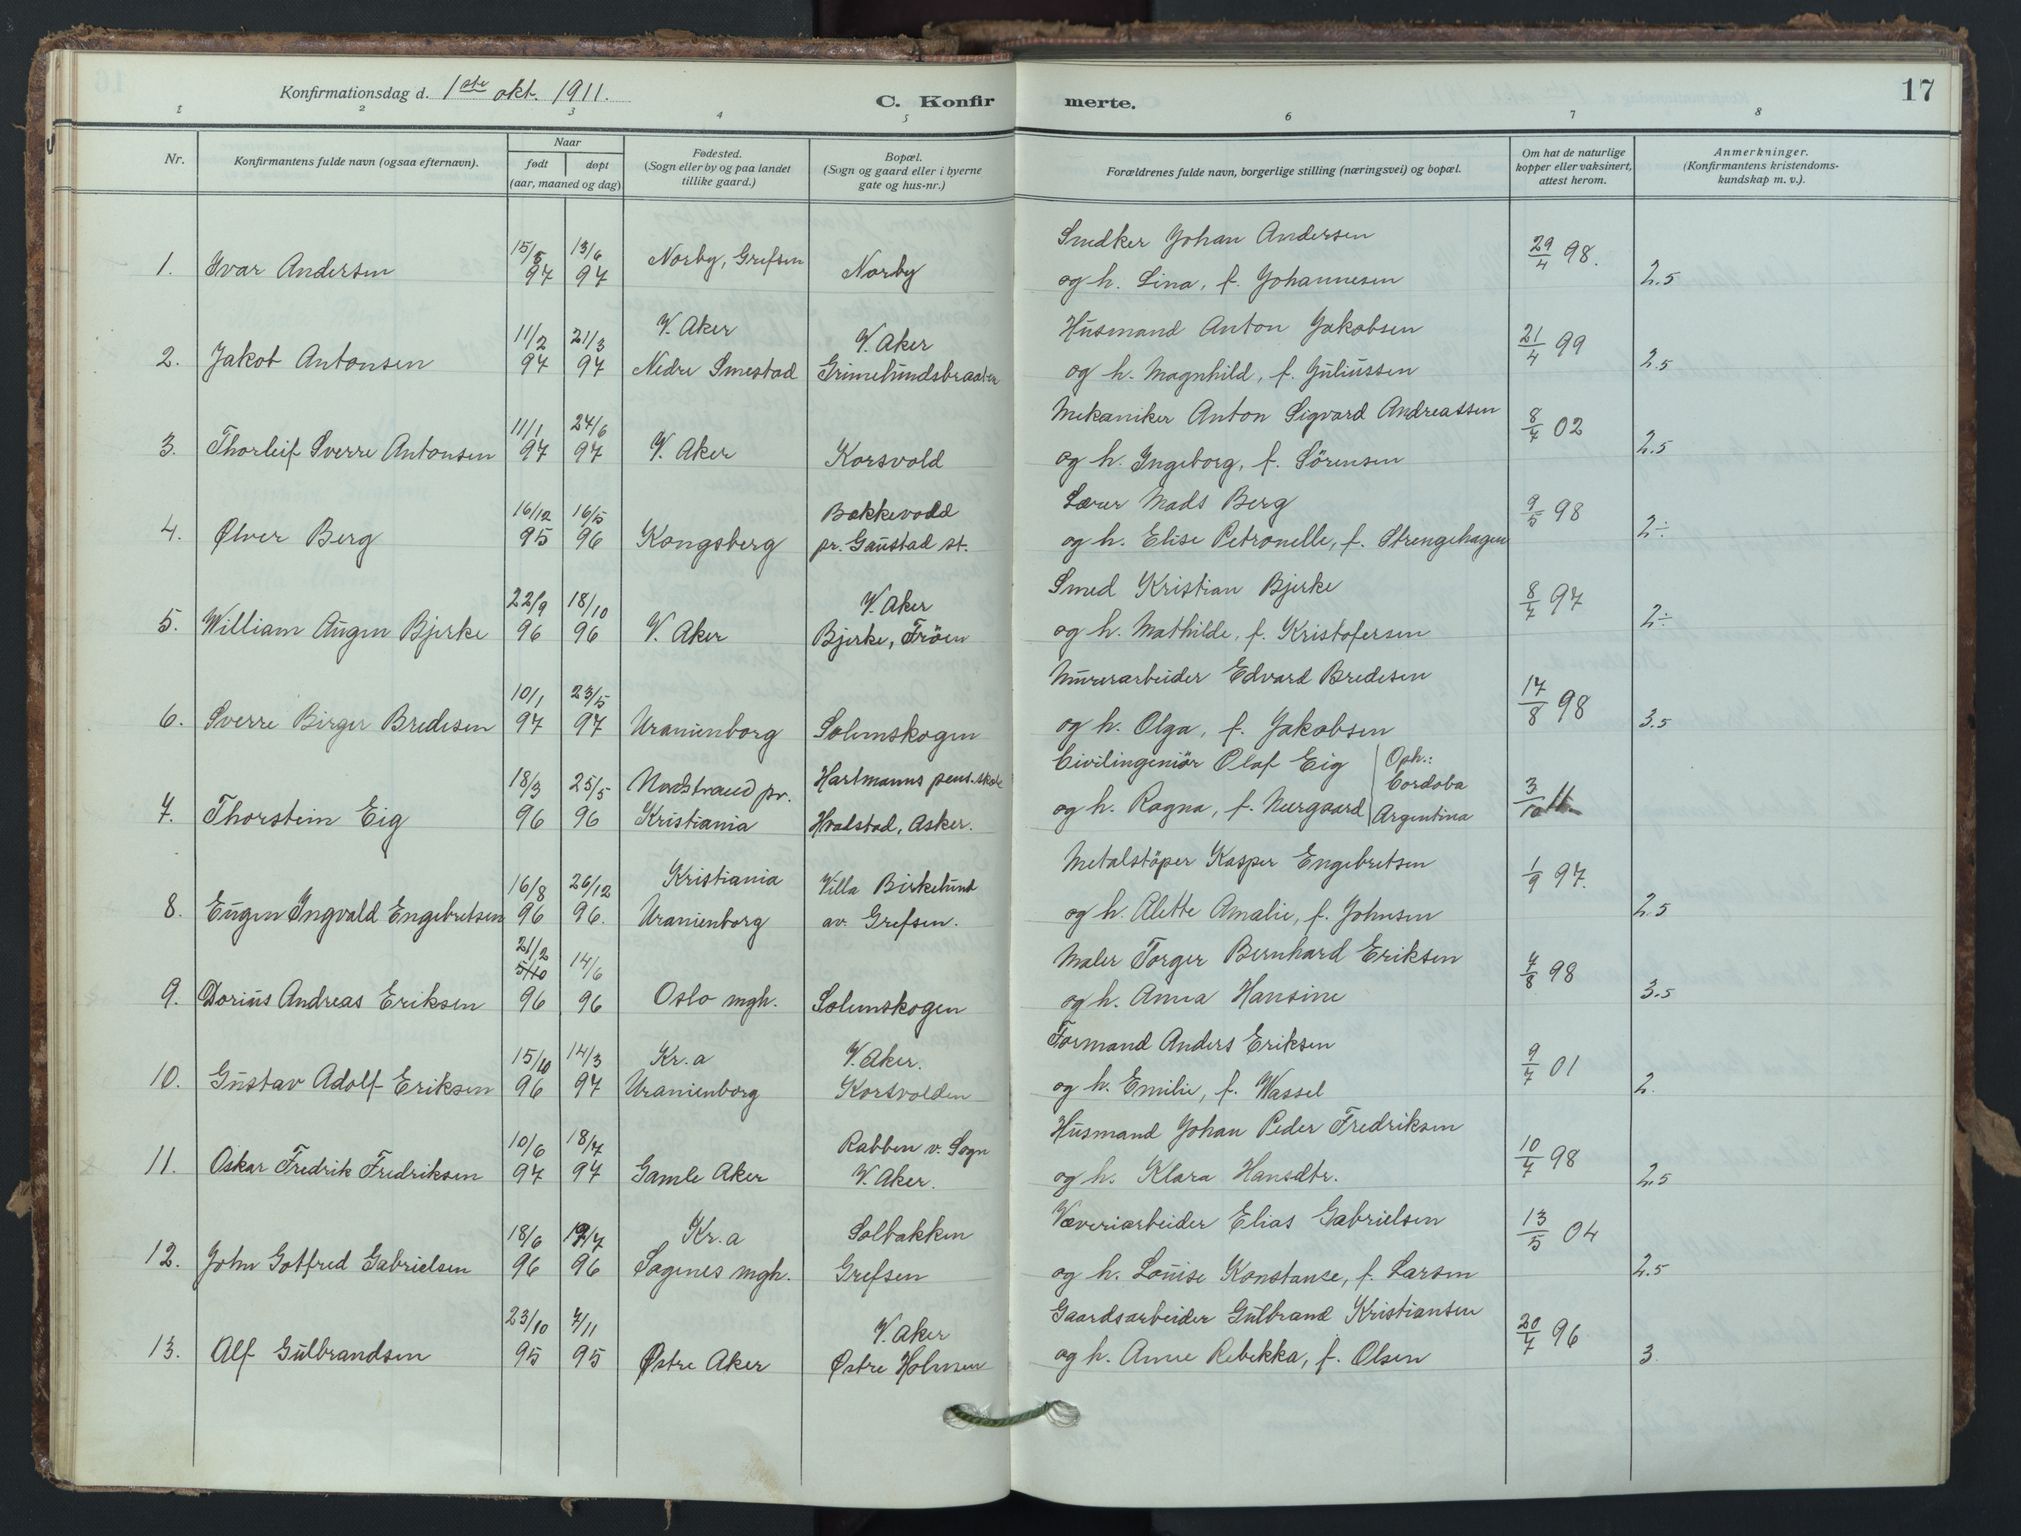 Konfirmationsdag d. 1ste okt. 1911.
C. Konfirmerte.
17
1 2 3 4 5 6 7 8
Nr.
Konfirmantens fulde navn (ogsaa efternavn).
Naar
født
døpt
(aar, maaned og dag)
Fødested.
(Sogn eller by og paa landet
tillike gaard.)
Bopæl.
(Sogn og gaard eller i byerne
gate og hus-nr.)
Forældrenes fulde navn, borgerlige stilling (næringsvei) og bopæl.
Om hat de naturlige
kopper eller vaksinert,
attest herom.
Anmerkninger.
(Konfirmantens kristendoms-
kundskap m. v.).
1. Ivar Andersen 15/5 97 13/6 97 Norby, Grefsen Norby
Smedker Johan Andersen
og h. Lina, f. Johannesen
29/4 98. 2.5
2. Jakob Antonsen 11/2 97 21/3 97
V. Aker
Nedre Smestad
V. Aker
Grimelundsbraaten
Husmand Anton Jakobsen
og h. Magnhild, f. Juliussen
21/4 99 2.5
3. Thorleif Sverre Antonsen 11/1 97 24/6 97 V. Aker Korsvold
Mekaniker Anton Sigvard Andreassen
og h. Ingeborg, f. Sörensen
8/7 02 2.5
4. Ølver Berg 16/12 95 16/5 96 Kongsberg
Bakkevold
pr. Gaustad st.
Lærer Mads Berg
og h. Elise Petronelle, f. Strengehagen
9/5 98 2÷
5. William Augen Bjerke 22/9 96 18/10 96 V. Aker
V. Aker
Bjerke, Fröen
Smed Kristian Bjerke
og h. Mathilde, f. Kristofersen
8/7 97 2÷
6. Sverre Birger Bredesen 10/1 97 23/5 97 Uranienborg Solemskogen
Murerarbeider Edvard Bredesen
og h. Olga, f. Jakobsen
17/8 98 3.5
7. Thorstein Eig 18/3 96 25/5 96
Nordstrand pr.
Kristiania
Hartmanns pens. skole
Hvalstad, Asker.
Civilingeniör Olaf Eig
og h. Ragna, f. Neergaard
Oph.:
Cordoba
Argentina
3/10 11.
8. Eugen Ingvald Engebretsen 16/8 96 26/12 96.
Kristiania
Uranienborg
Villa Birkelund
av. Grefsen.
Metalstöper Kasper Engebretsen
og h. Alette Amalie, f. Johnsen
1/9 97. 2.5
9. Dorius Andreas Eriksen 21/2 5/10 96 14/6 96 Oslo mgh. Solemskogen
Maler Torger Bernhard Eriksen
og h. Anna Hansine
4/8 98 3.5
10. Gustav Adolf Eriksen 15/10 96 14/3 97
Kr.a
Uranienborg
V. Aker.
Korsvolden
Formand Anders Eriksen
og h. Emilie, f. Wassel
9/7 01 2.
11. Oskar Fredrik Fredriksen 10/6 97 18/7 97 Gamle Aker
Rabben v. Sogn
V. Aker.
Husmand Johan Peder Fredriksen
og h. Klara Hansdtr.
10/7 98 2.5
12. John Gotfred Gabrielsen 18/6 96 96
Kr.a
Sagenes mgh.
Solbakken
Grefsen
Væveriarbeider Elias Gabrielsen
og h. Louise Konstanse, f. Larsen
13/5 04 2.5
13. Alf Gulbrandsen 23/10 95 7/11 95 Østre Aker
V. Aker
Østre Holmen
Gaardsarbeider Gulbrand Kristiansen
og h. Anne Rebekka, f. Olsen
20/7 96 3